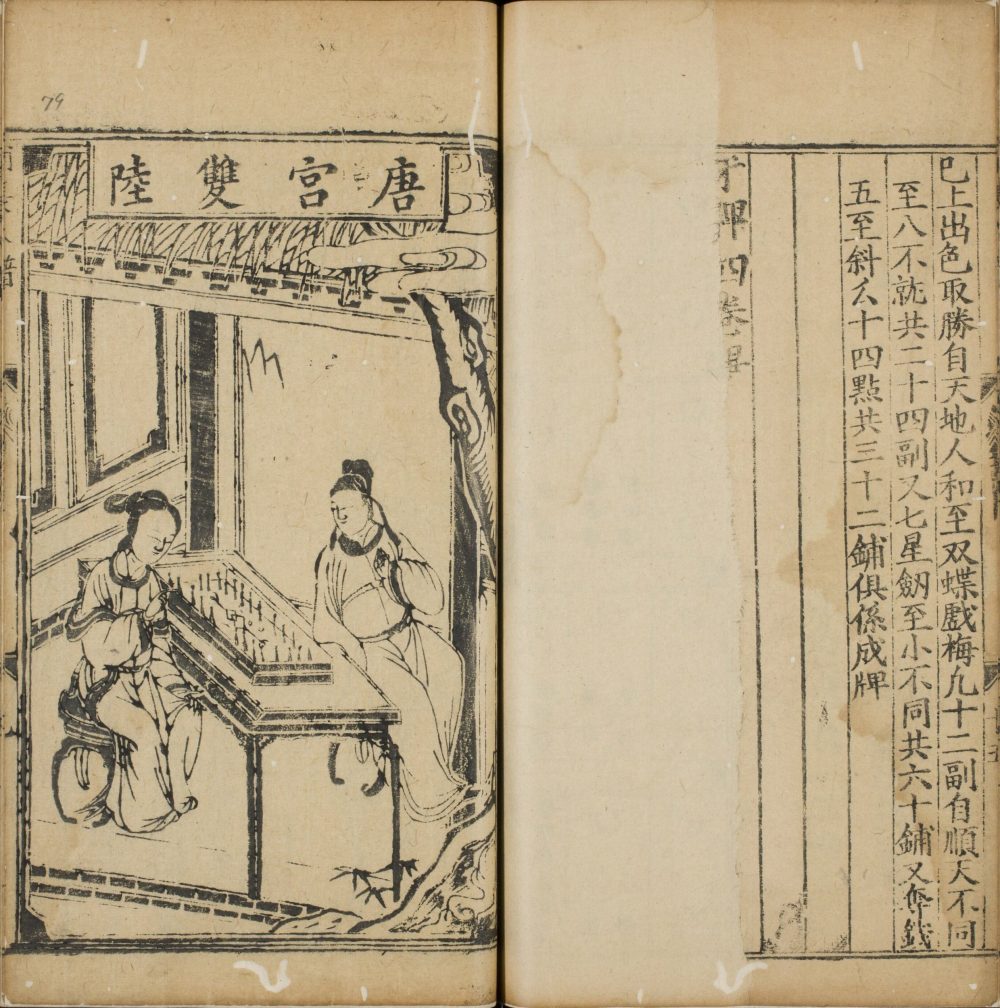 已上出色取勝自天地人和至双蝶戲梅九十二副自順大不同
至八不就共二十四副又七星劔至小不同共六十鋪又奪錢
五至斜么十四點共三十二鋪俱係成牌
牙牌四卷畢
唐宮雙陸
79